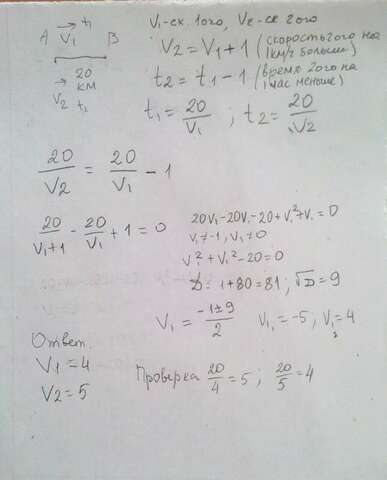 A → t₁ B
V₁
→ 20
КМ
V₂ t₂
V₁-ск. 1ого, V₂-ск. 2ого
V₂ = V₁ + 1 (скорость 2го на 1км/ч больше)
t₂ = t₁ - 1 (время 2ого на 1 час меньше)
t₁ = 20/V₁ ; t₂ = 20/V₂
20/V₂ = 20/V₁ - 1
20/(V₁+1) - 20/V₁ + 1 = 0
20V₁-20V₁-20+V₁²+V₁ = 0
V₁ ≠ -1 ; V₁ ≠ 0
V₁² + V₁² - 20 = 0
D = 1 + 80 = 81 ; √D = 9
V₁ = (-1 ± 9)/2 V₁ = -5 ; V₁ = 4
Ответ:
V₁ = 4
V₂ = 5
Проверка 20/4 = 5 ; 20/5 = 4